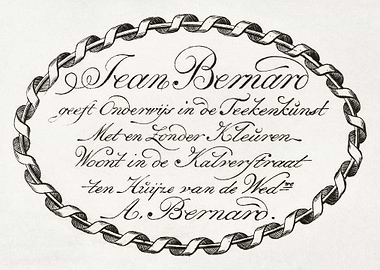 Jean Bernard
geeft Onderwijs in de Teekenkunst
Met en Zonder Kleuren
Woont in de Kalverstraat
ten Huijze van de Wed.ʷᵉ
A. Bernard.